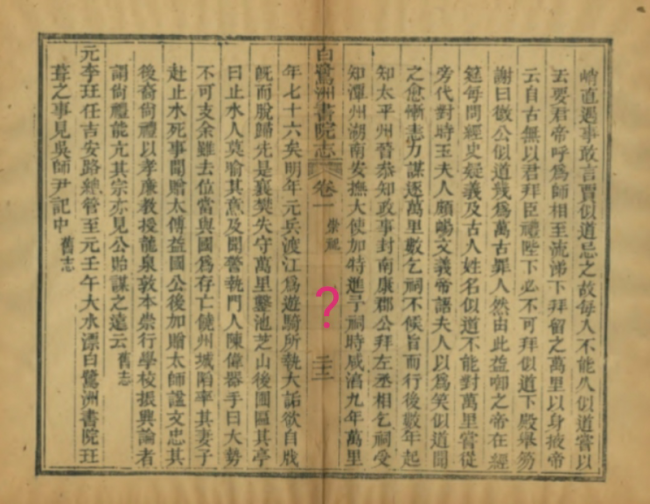 峭直遇事敢言賈似道忌之故每入不能久似道嘗以
去要君帝呼爲師相至流涕下拜留之萬里以身掖帝
云自古無以君拜臣禮陛下必不可拜似道下殿舉笏
謝曰微公似道幾爲萬古罪人然由此益啣之帝在經
筵每問經史疑義及古人姓名似道不能對萬里嘗從
旁代對時王夫人頗嫺文義帝語夫人以爲笑似道聞
之愈慚恚力謀逐萬里數乞祠不候旨而行後數年起
知太平州晉叅知政事封南康郡公拜左丞相乞祠受
知潭州湖南安撫大使加特進予祠時咸淳九年萬里
白鷺洲書院志 卷一 崇祀 二十三
?
年七十六矣明年元兵渡江爲遊騎所執大詬欲自戕
旣而脫歸先是襄樊失守萬里鑿池芝山後圃扁其亭
曰止水人莫喻其意及聞警執門人陳偉器手曰大勢
不可支余雖去位當與國爲存亡饒州城陷率其妻子
赴止水死事聞贈太傅益國公後加贈太師諡文忠其
後裔尙禮以孝廉教授龍泉敦本崇行學校振興論者
謂尙禮能亢其宗亦見公貽謀之遠云 舊志
元李珏任吉安路總管至元壬午大水漂白鷺洲書院珏
葺之事見吳師尹記中 舊志